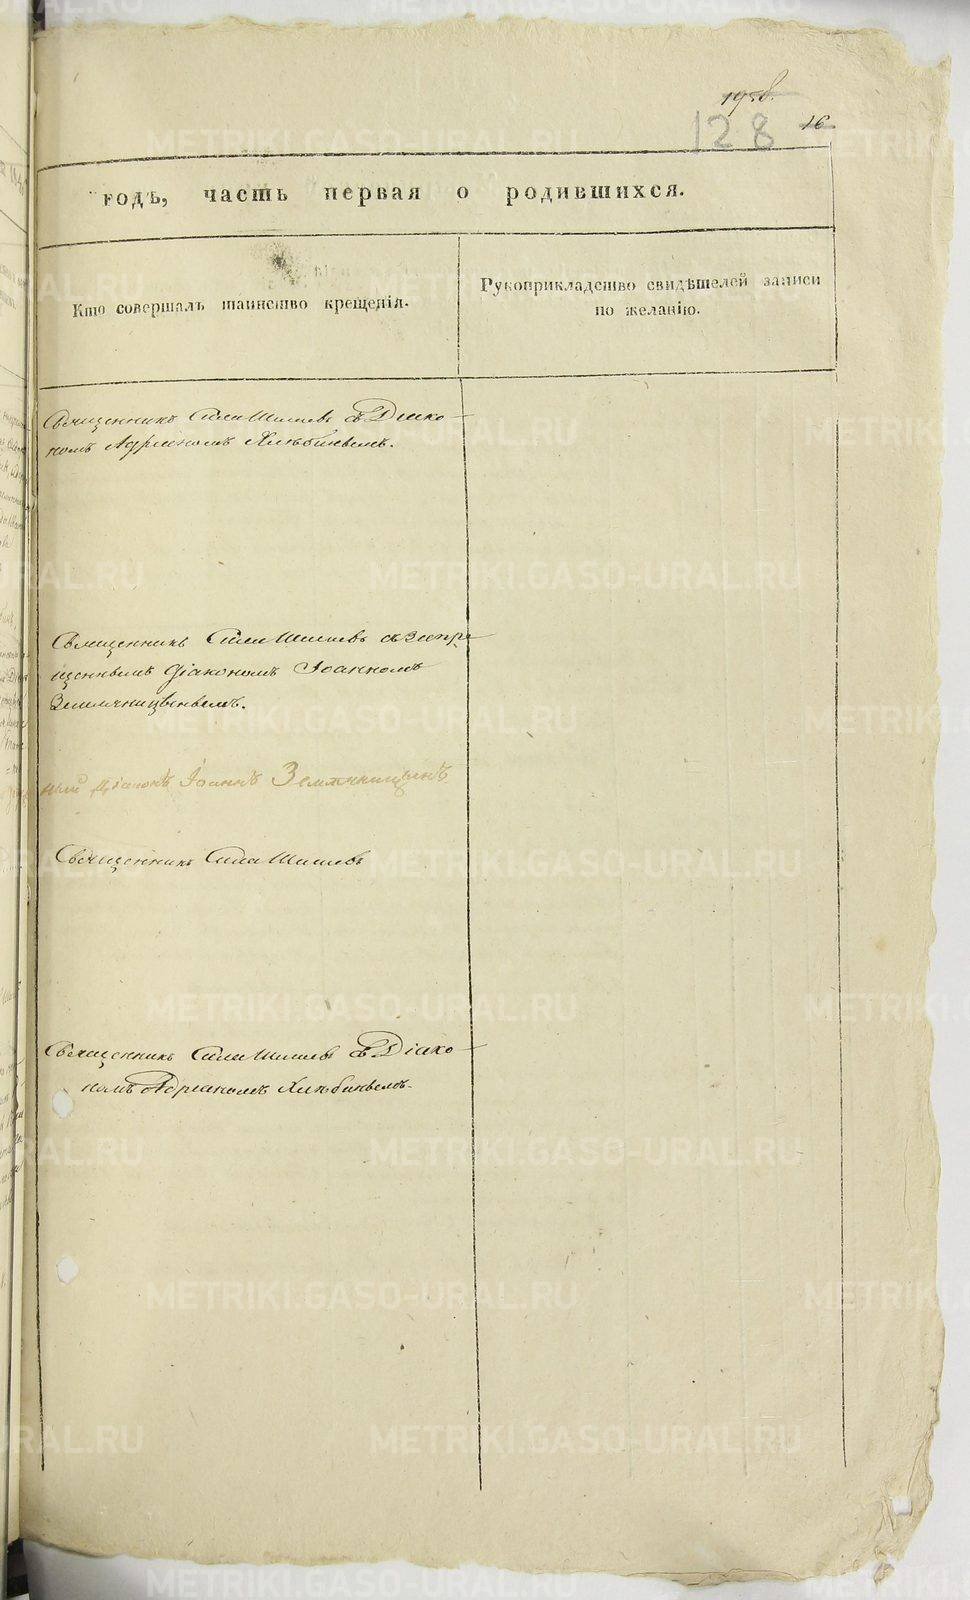 128 16
годъ, часть первая о родившихся.
Кто совершалъ таинство крещенія.
Рукоприкладство свидѣтелей записи
по желанію.
Священникъ Сила Шишевъ съ Діако-
номъ Адріаномъ Хлѣбинымъ.
Священникъ Сила Шишевъ съ запре-
щеннымъ Діакономъ Іоанномъ
Земляницынымъ.
ный Діаконъ Іоаннъ Земляницынъ
Священникъ Сила Шишевъ
Священникъ Сила Шишевъ съ Діако-
номъ Адріаномъ Хлѣбинымъ.
METRIKI.GASO-URAL.RU